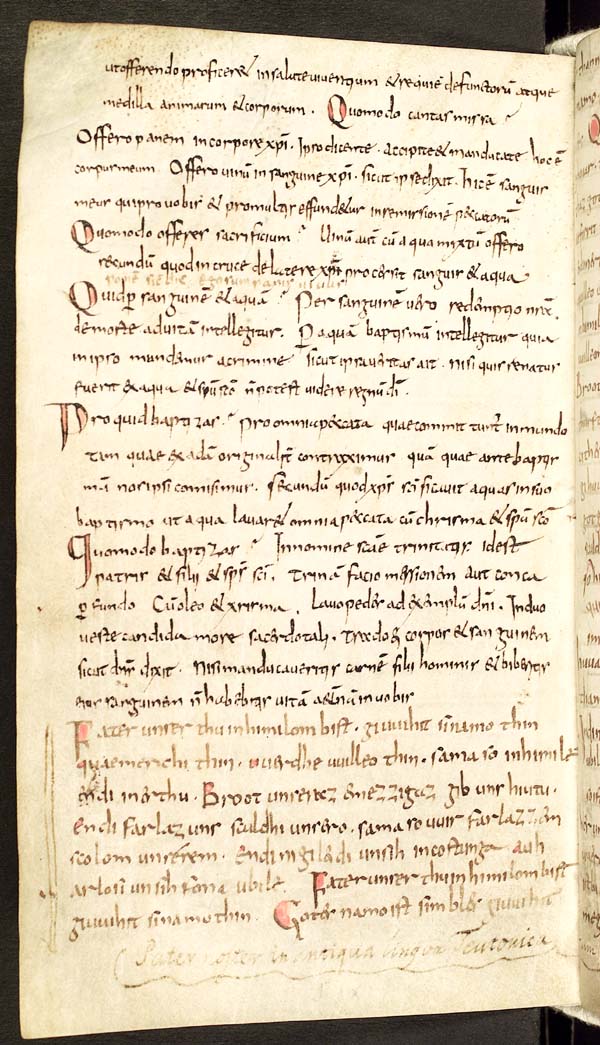 ut offerendo proficeret in salute viventium & requie defunctorũ atque
medilla animarum & corporum. Quomodo cantas missa?
Offero panem in corpore xp̃i. Ipso dicente. Accipite & manducate hoc ẽ
corpus meum. Offero vinũ in sanguine xp̃i. sicut ipse dixit. hic ẽ sanguis
meus qui pro vobis & pro multis effundetur in remissionẽ peccatorũ
Quomodo offeres sacrificium? Vinũ aut̃ cũ aqua mixtũ offero
secundũ quod in cruce de latere xp̃i processit sanguis & aqua
Quid p̱ sanguinẽ & aquã? Per sanguinẽ vero redemptio nr̃a
de morte ad vitã intellegitur. P̱ aquã baptismũ intellegitur quia
in ipso mundemur a crimine sicut ipsa veritas ait. nisi quis renatus
fuerit ex aqua & sp̃u sc̃o ñ potest videre regnũ dĩ.
Pro quid baptizas? pro omnia peccata quae commituntur in mundo
tam quae ex adã originalit̃ contraximus quã quae ante baptis
mã nos ipsi comisimus. secundũ quod xp̃s sc̃ificavit aquas in suo
baptismo ut aqua lavaret omnia peccata cũ chrisma & sp̃u sc̃o
Quomodo baptizas? In nomine sc̃ae trinitatis. id est
patris & filii & sp̃s sc̃i. trinã facio mersionem aut conca
p̱fundo Cũ oleo & xrisma. Lavo pedes ad exemplũ dñi. Induo
veste candida more sacerdotali. Trado ei corpus & sanguinem
sicut dñs dixit. Nisi manducaveritis carnẽ filii hominis & bibetis
eius sanguinem ñ habebitis vitã aeternã in vobis
Fater unser thu in himilom bist. giuuihit si namo thin
quaeme richi thin. uuerdhe uuilleo thin. sama so in himile
endi in erthu. Broot unseraz emezzigaz gib uns hiutu.
Endi farlaz uns sculdhi unsero. sama so uuir farlazzem
scolom unserem. Endi ni gileidi unsih in costunga. auh
arlosi unsih fona ubile. Fater unser thu in himilom bist
giuuihit si namo thin. Gotes namo ist simbles giuuihit
Pater noster in antiqua lingua Teutonica